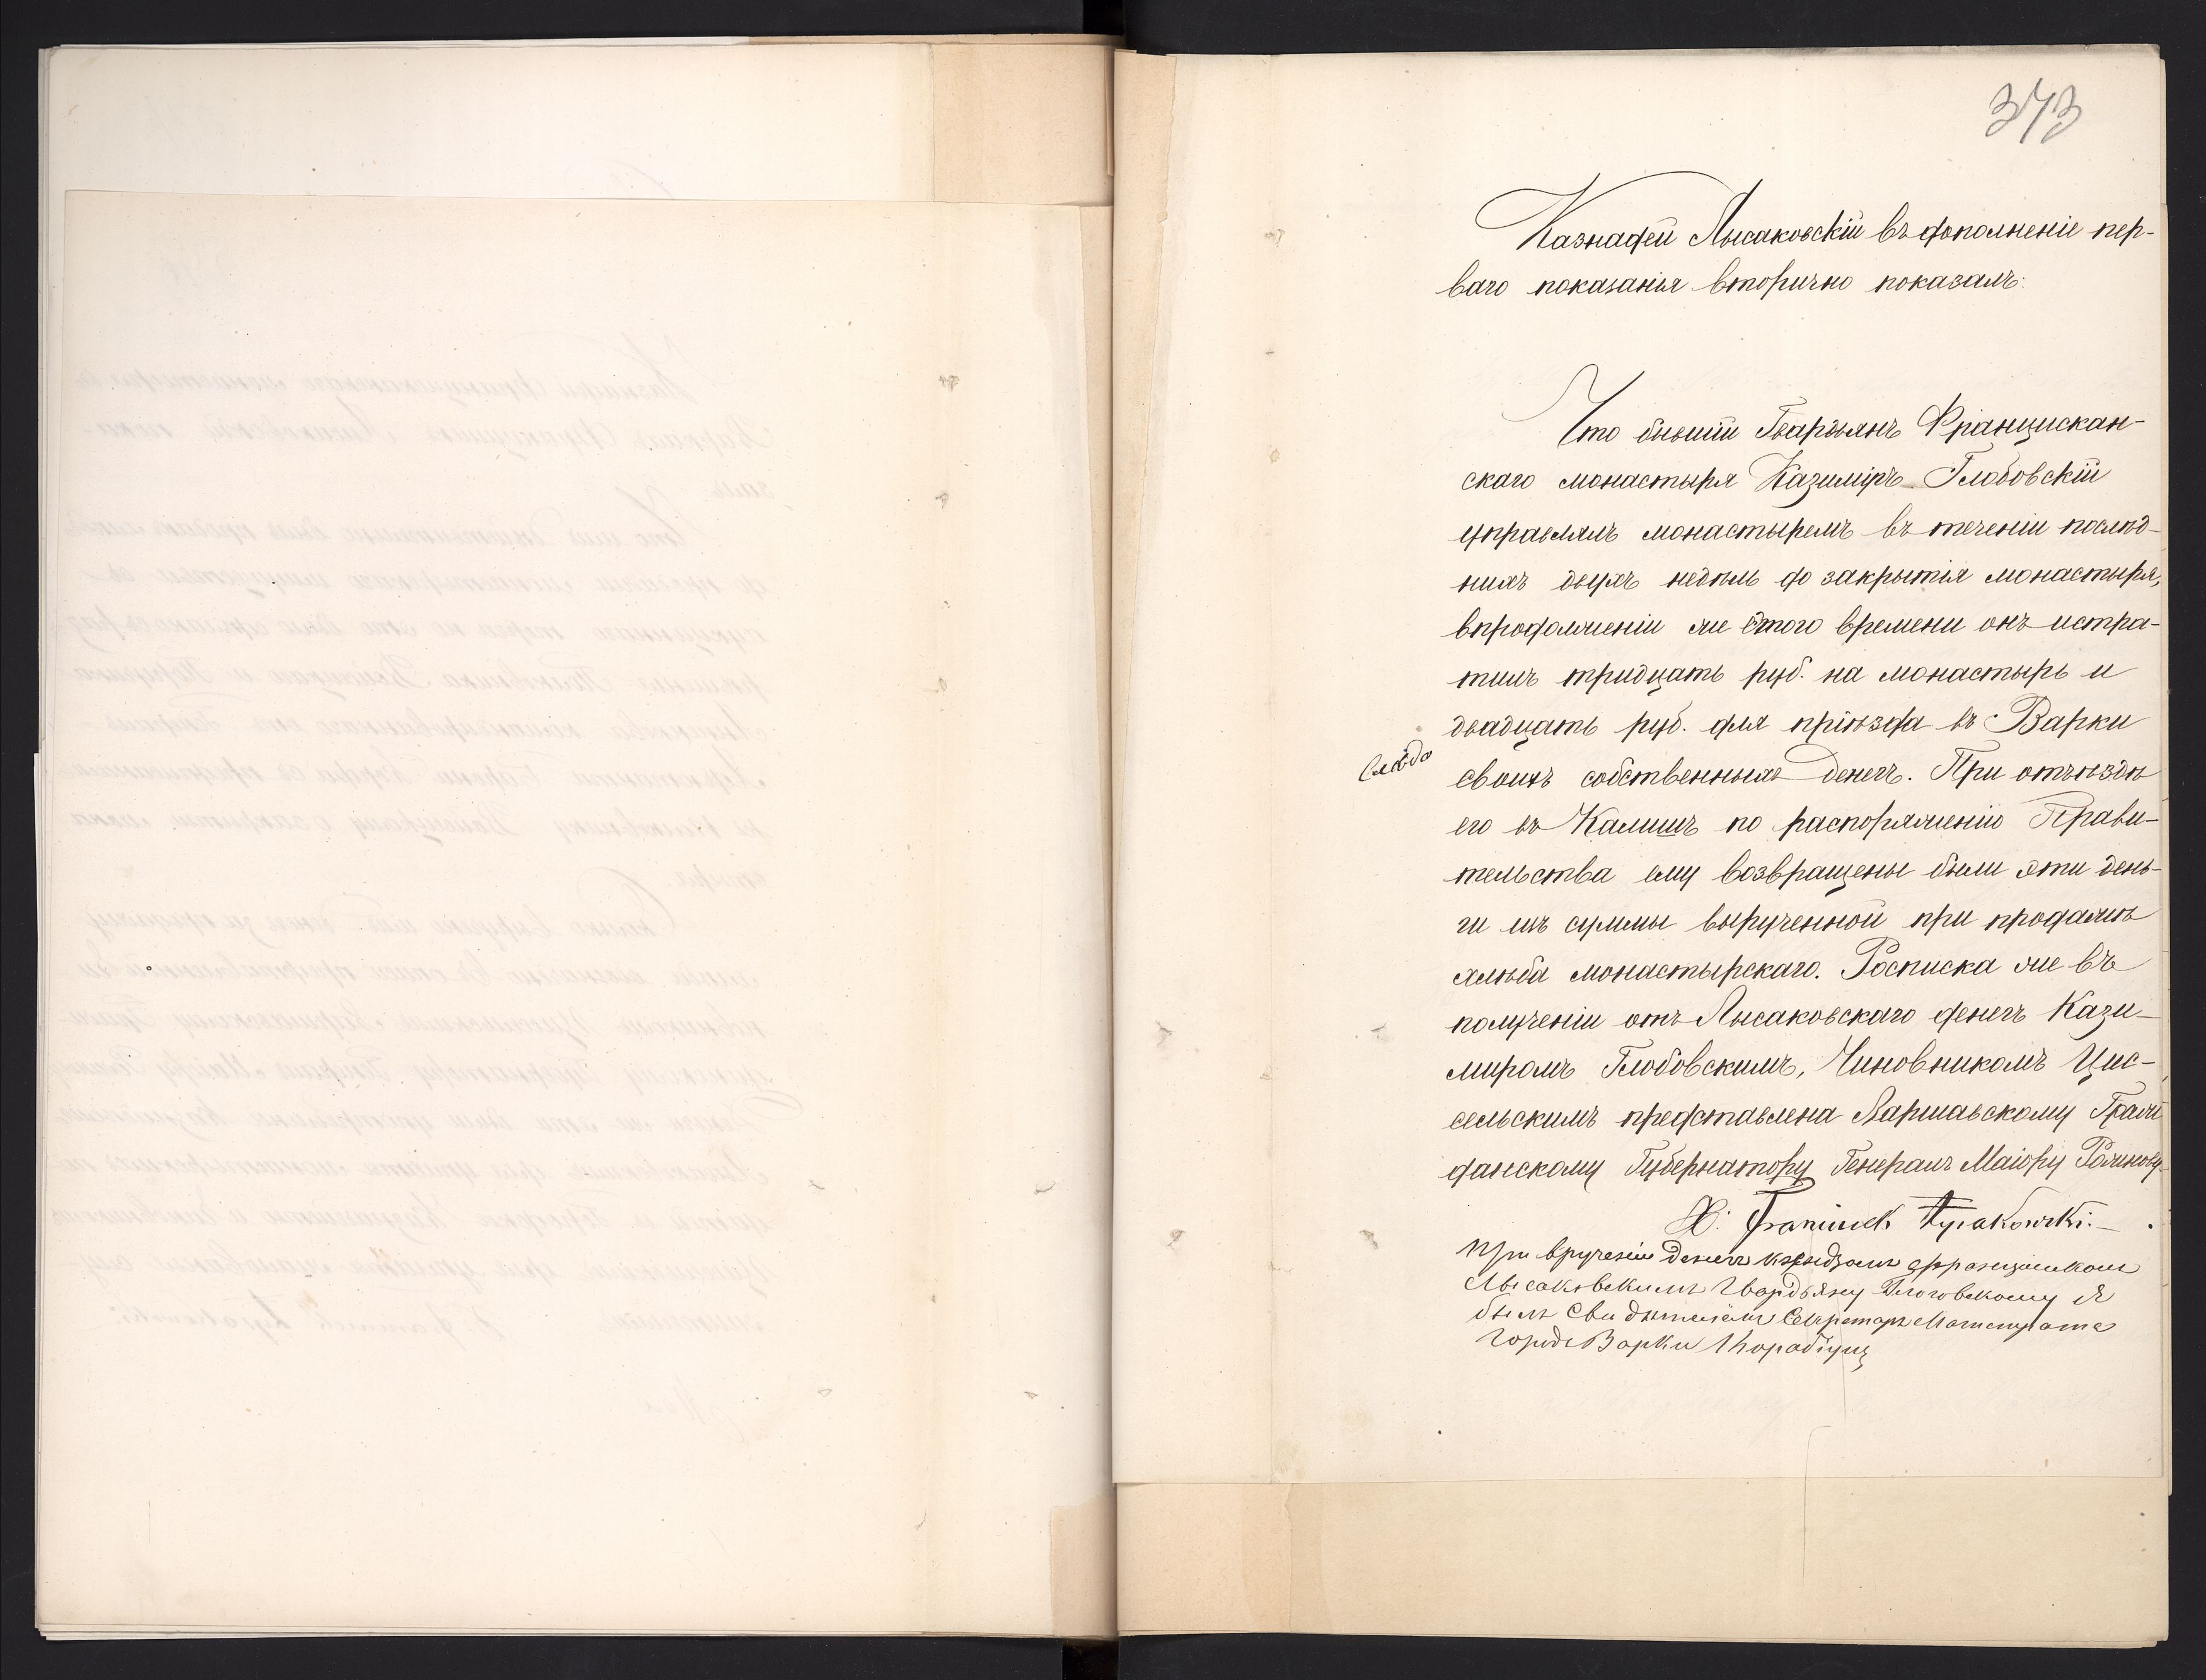 373
Казначей Лысаковскій въ дополненіе пер-
ваго показанія вторично показалъ:
Что бывшій Гвардіянъ Францискан-
скаго монастыря Казиміръ Глобовскій
управлялъ монастыремъ въ теченіи послѣд-
нихъ двухъ недѣль до закрытія монастыря,
впродолженіи же этого времени онъ истра-
тилъ тридцать руб. на монастырь и
двадцать руб. для пріѣзда въ Варки
своихъ собственныхъ денегъ. При отъѣздѣ
его въ Калишъ по распоряженію Прави-
тельства ему возвращены были эти день-
ги изъ суммы вырученной при продажѣ
хлѣба монастырскаго. Росписка же въ
полученіи отъ Лысаковскаго денегъ Кази-
миромъ Глобовскимъ, Чиновникомъ Цис-
сельскимъ представлена Варшавскому Граж-
данскому Губернатору Генералъ Маіору Рожнову.
X: Franciszek Łysakowski.
При врученіи денегъ ксендзомъ Францишкомъ
Лысаковскимъ Гвардьяну Глоговскому Я
былъ Свидѣтелемъ Секретарь Магистрата
Города Варки